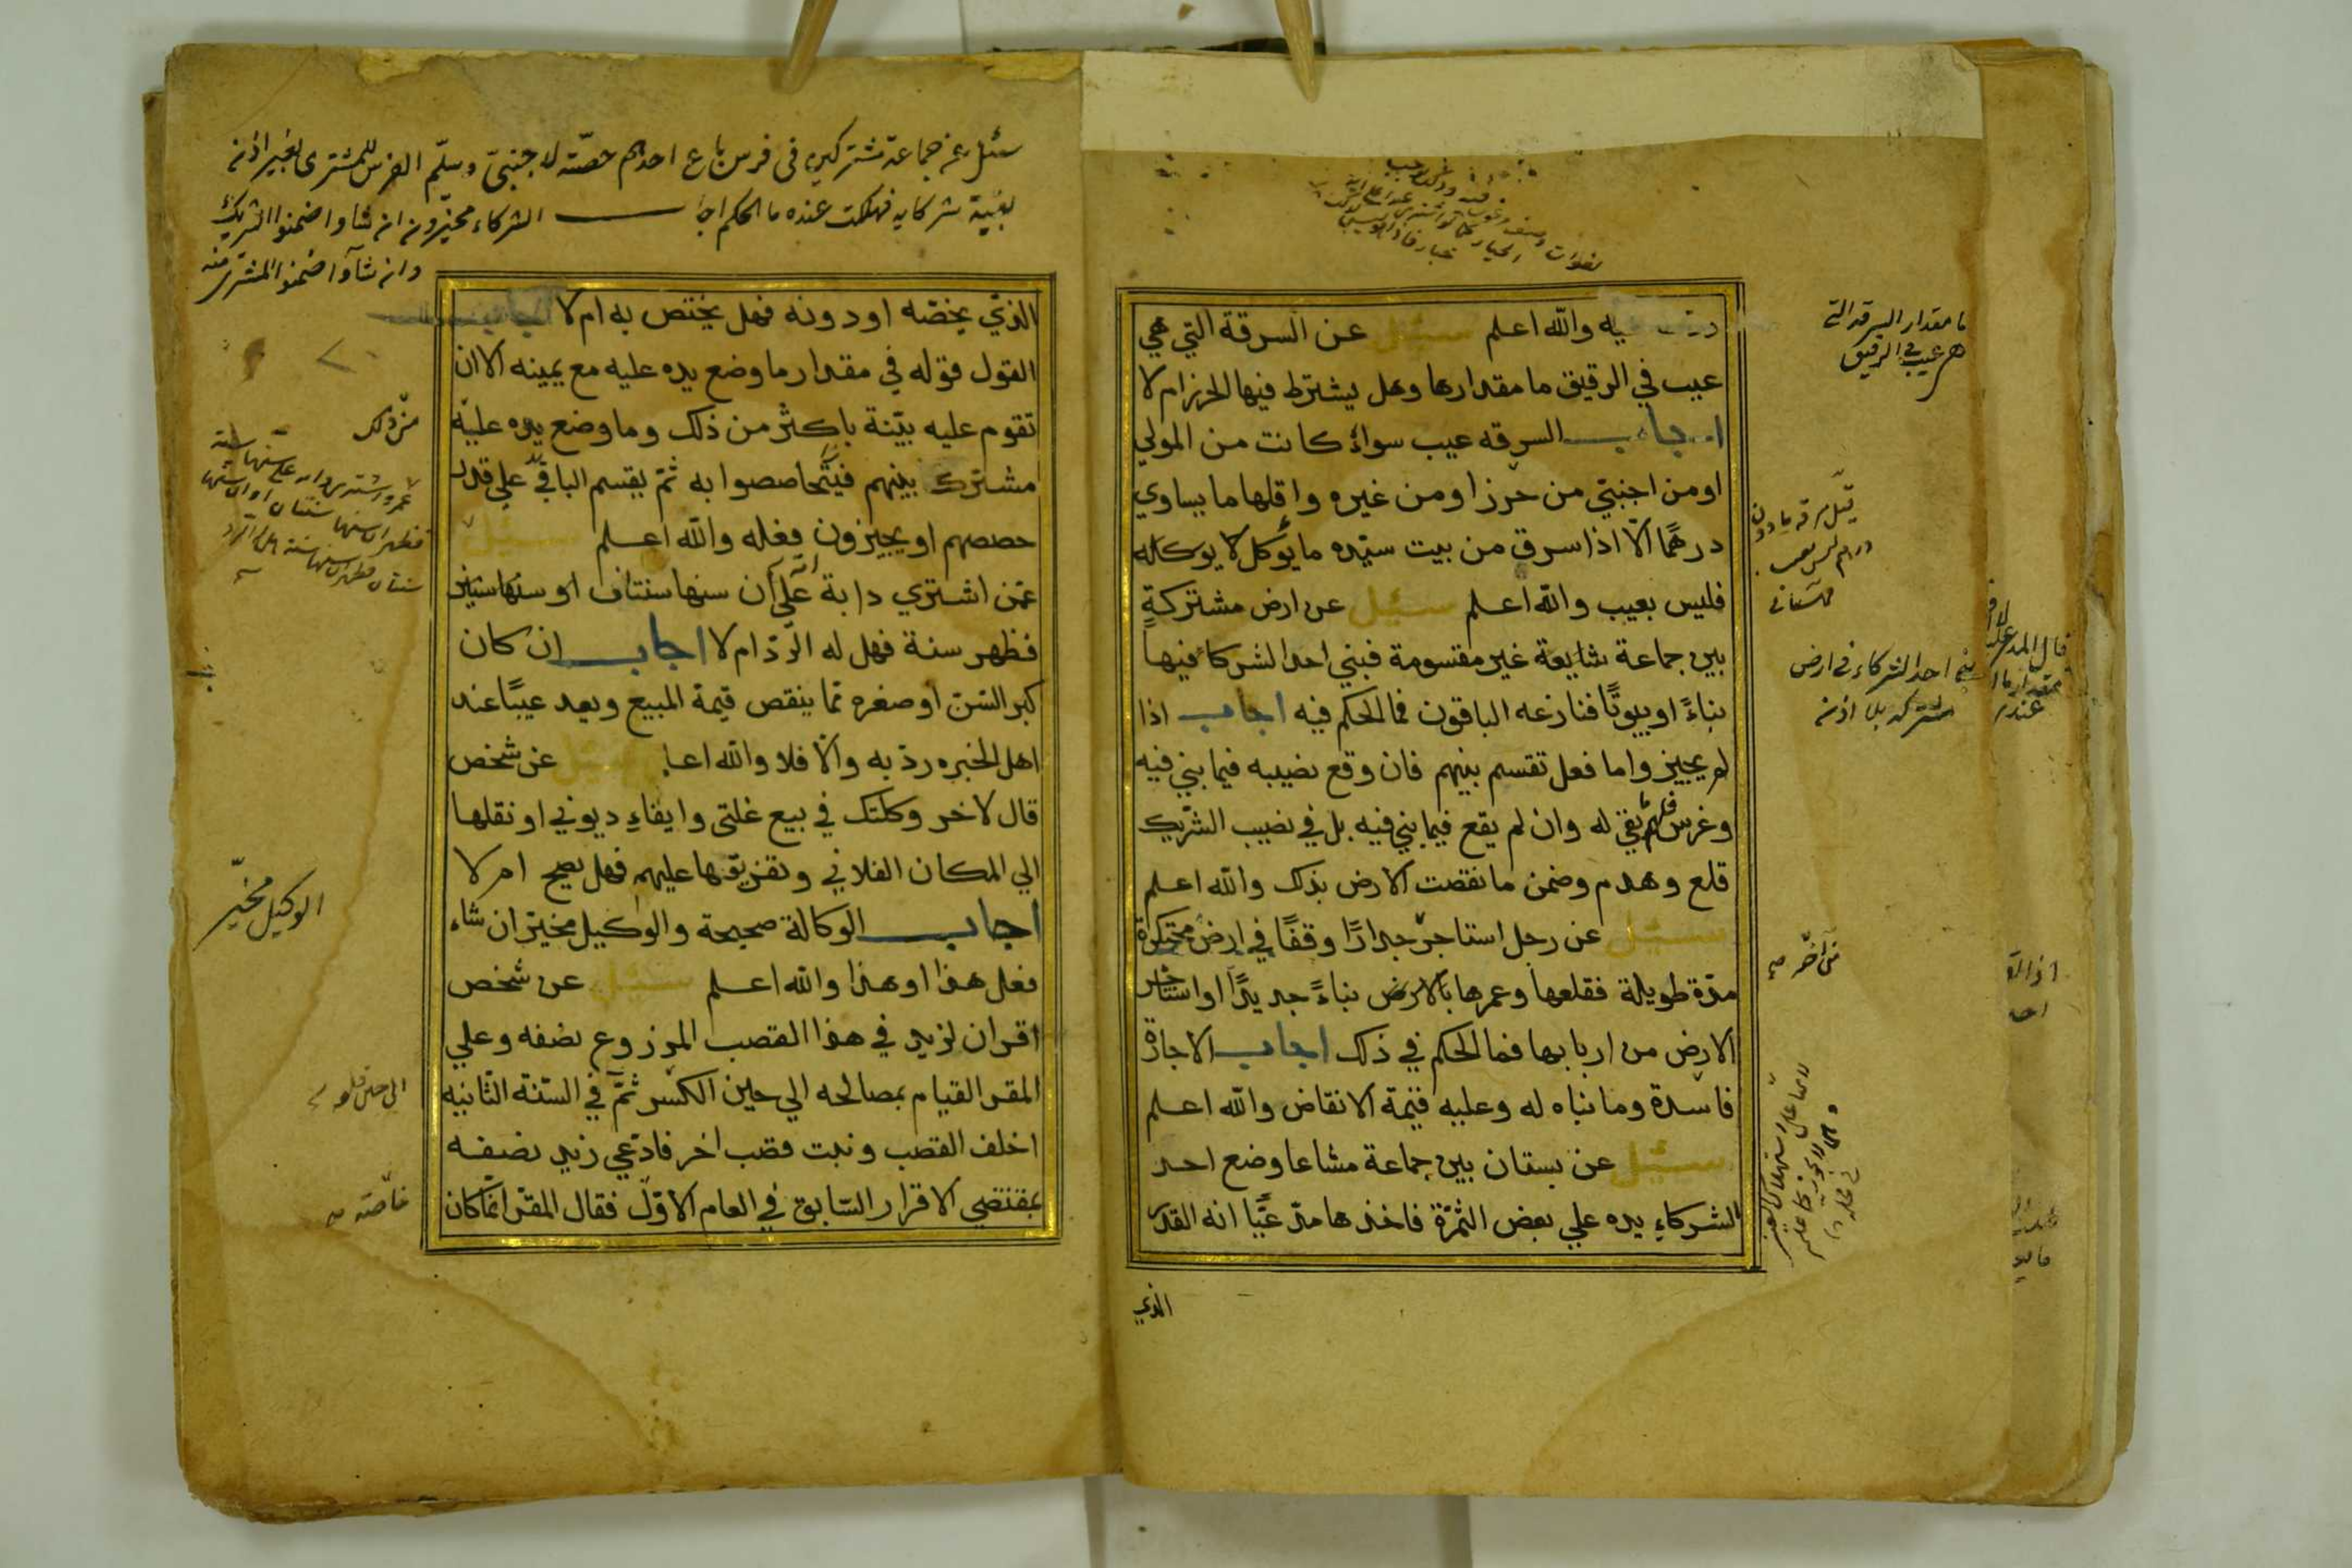 عليه والله اعلم سئيل عن السرقة التي هي
عيب في الرقيق ما مقدارها وهل يشترط فيها الحرز ام لا
اجاب السرقه عيب سواءً كانت من المولي
او من اجنبيّ من حرز او من غيره واقلها ما يساوي
درهمًا الّا اذا سرق من بيت سيّده ما يؤكل لا يوكاله
فليس بعيب والله اعلم سئيل عن ارض مشتركةٍ
بين جماعة شايعة غير مقتسومة فبني احد الشركا فيها
بناءً او بيوتًا فنازعه الباقون فما الحكم فيه اجاب اذا
لم يجيزوا ما فعل تقسم بينهم فان وقع نصيبه فيما بني فيه
وغرس بقي له وان لم يقع فيما بني فيه بل في نصيب الشريك
قلع وهدم وضمن ما نقصت الارض بذلك والله اعلم
سئيل عن رجل استاجر جدارًا وقفًا في ارض محتكرة
مدّة طويلة فقلعها وعمرها بالارض بناءً جديدًا او استاجر
الارض من اربابها فما الحكم في ذلك اجاب الاجازة
فاسدة وما بناه له وعليه قيمة الانقاض والله اعلم
سئيل عن بستان بين جماعة مشاعا وضع احد
الشركاءِ يده علي بعض الثمرة فاخذها مدّعيًا انه القدر
الذي
ما مقدار السرقة التي
هي عيب في الرقيق
بني احد الشركاء في ارض
مشتركه بلا اذنه
سئل عن جماعة مشتركين في فرس باع احدهم حصّته لاجنبيّ وسلّم الفرس للمشتري بغير اذنه
بغيبة شركايه فهلكت عنده ما الحكم اجاب الشركاء مخيّرون ان شاوا ضمنوا الشريك
وان شآوا ضمنوا المشتري منه
الذيّ يخصّه او دونه فهل يختص به ام لا
القول قوله في مقدار ما وضع يده عليه مع يمينه الا ان
تقوم عليه بيّنة باكثر من ذلك وما وضع يده عليه
مشترك بينهم فيتحاصصوا به ثمّ يقسم الباقي علي قدر
حصصهم او يجيزون فعله والله اعلم سئيل
عمّن اشتري دابة علي ان سنها سنتان او سنها سنين
فظهر سنة فهل له الرّدّ ام لا اجاب ان كان
كبر السّن او صغره ممّا ينقص قيمة المبيع ويعد عيبًا عند
اهل الخبره ردّ به والّا فلا والله اعلم سئيل عن شخص
قال لاخر وكلتك في بيع غلتي وايفاءِ ديوني او نقلها
الي المكان الفلاني وتفريقها عليهم فهل يصح ام لا
اجاب الوكالة صحيحة والوكيل مخيّر ان شاء
فعل هذا او هذا والله اعلم سئيل عن شخص
اقر ان لزيد في هذا القصب المزروع نصفه وعلي
المقر القيام بمصالحه الي حين الكسر ثمّ في السّنة الثّانيه
اخلف القصب ونبت قصب اخر فادّعي زيد نصفه
بمقتضي الاقرار السّابق في العام الاوّل فقال المقرّ انّما كان
الوكيل مخيّر